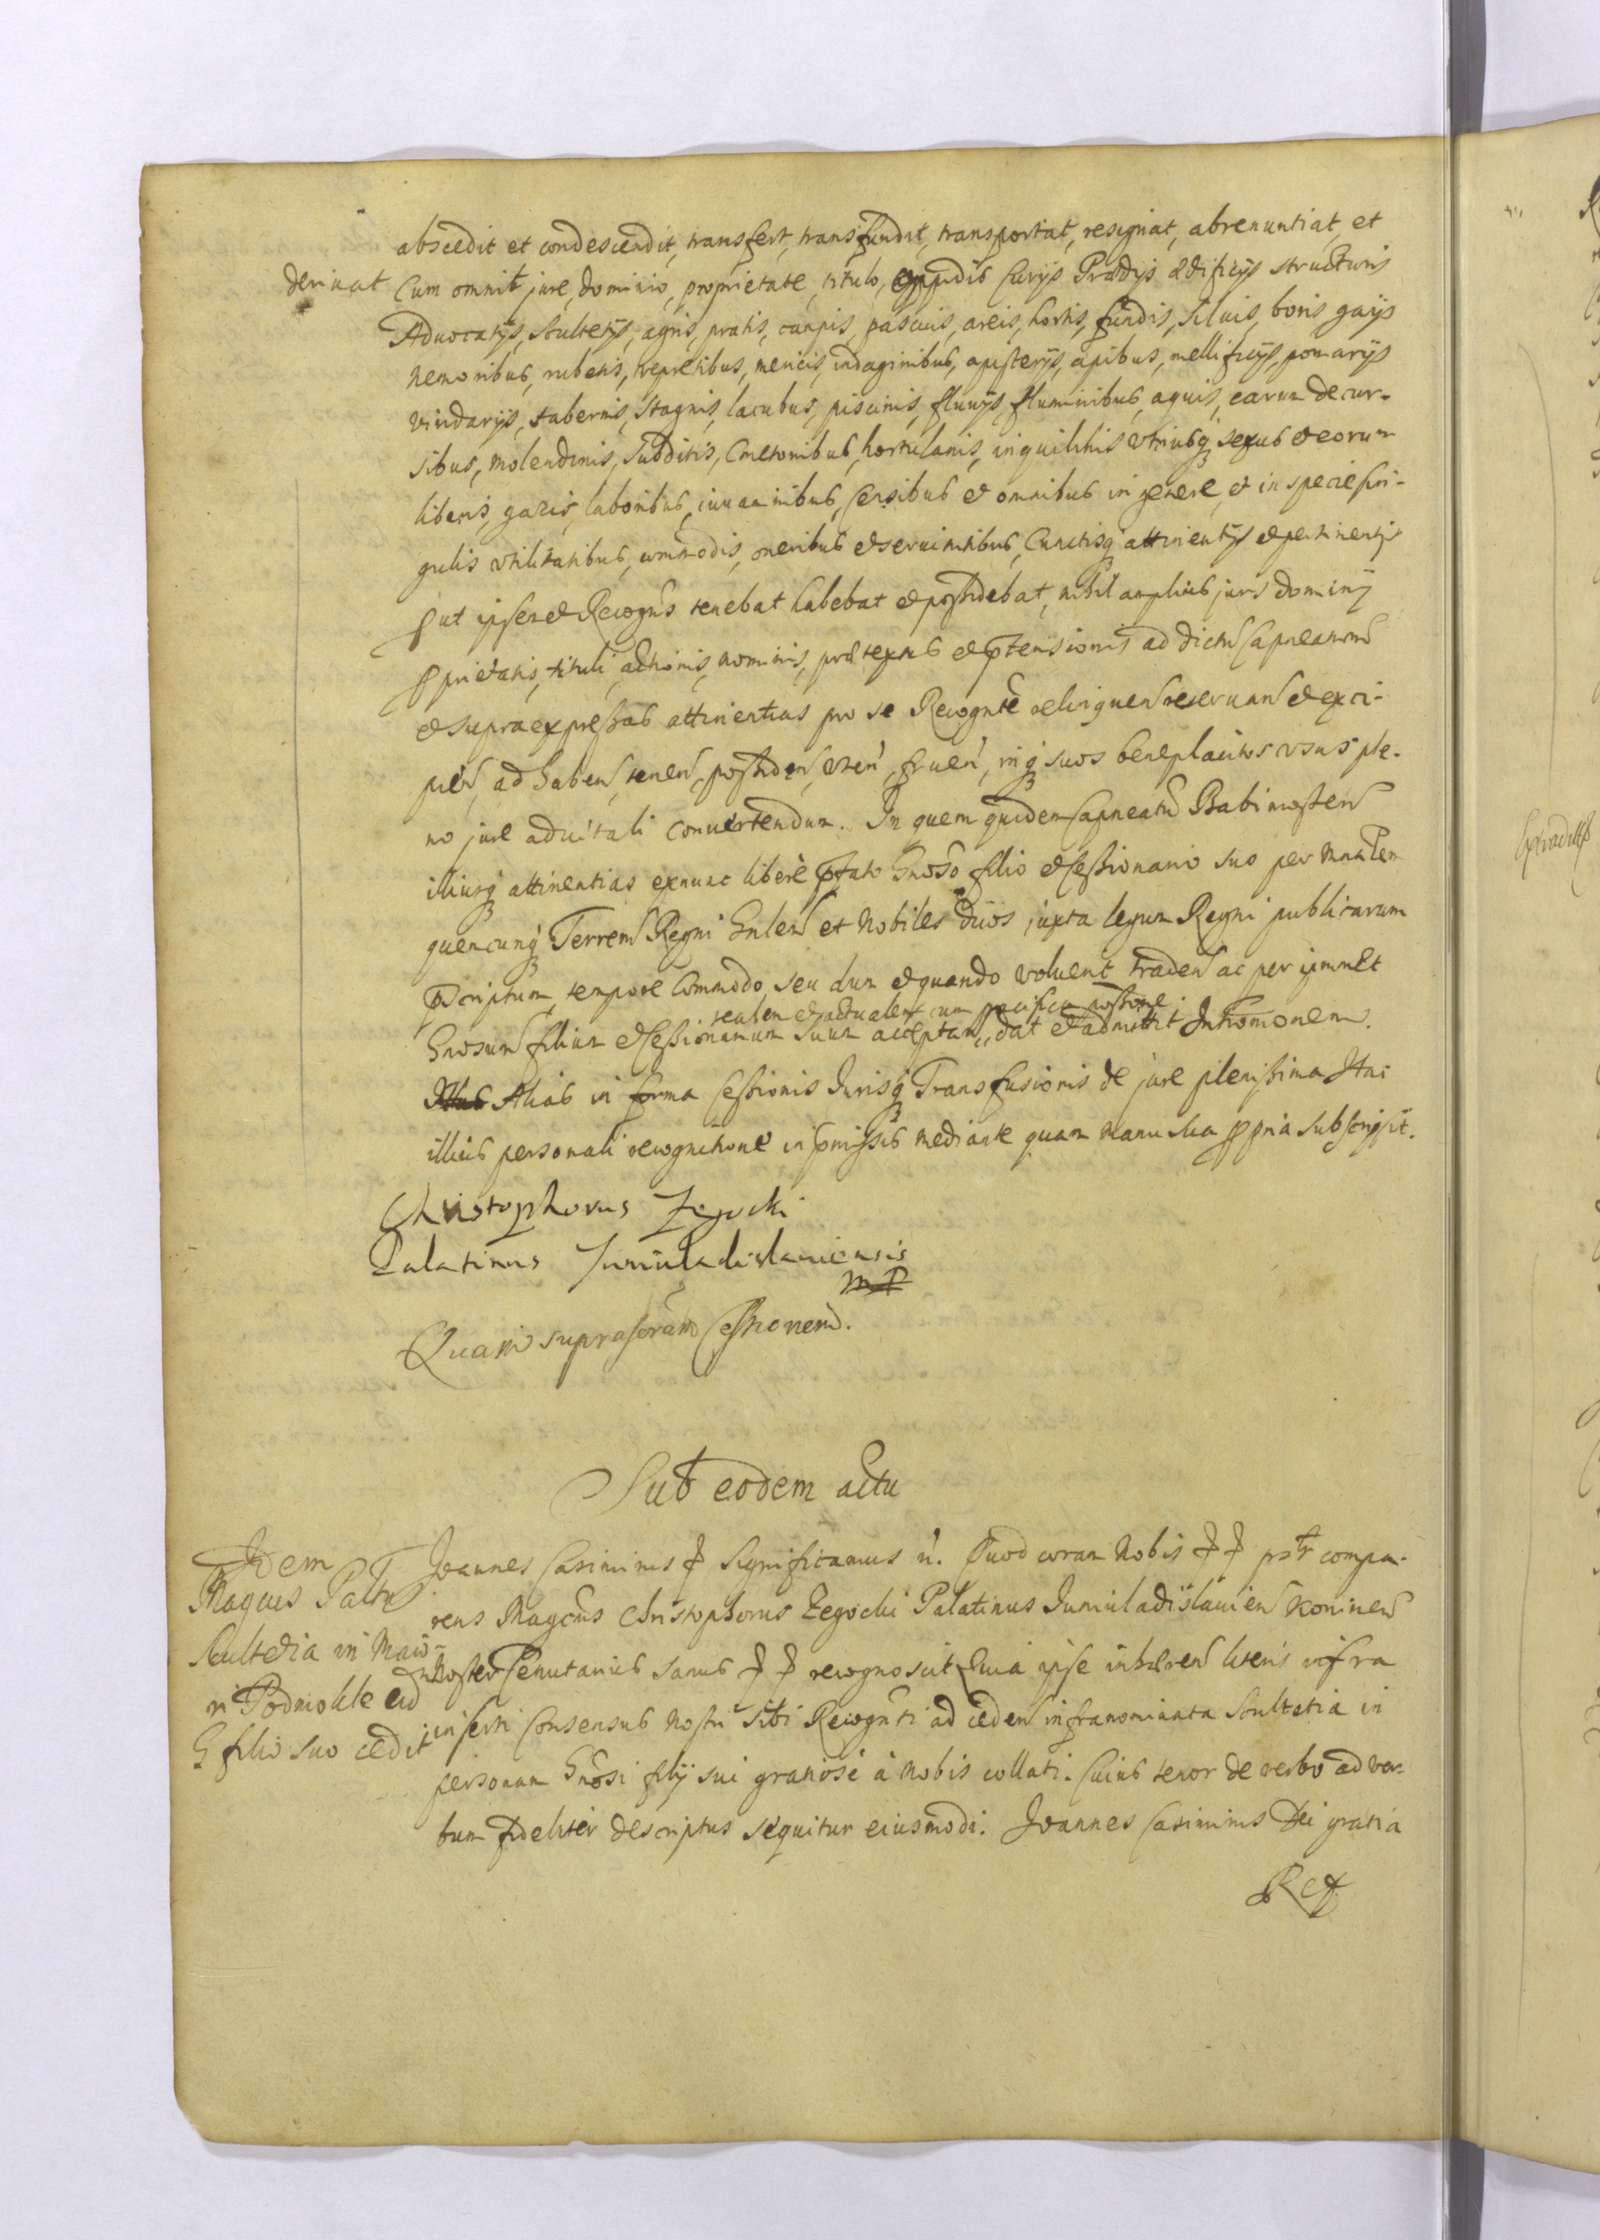 abscedit et condescendit, transfert, transfundit, transportat, resignat, abrenuntiat, et
derivat Cum omni jure, dominio, proprietate, titulo, oppidis Curijs Prædijs ædificijs structuris
Advocatijs, Scultetijs, agris, pratis, campis, pascuis, areis, hortis, fundis, siluis, boris gaijs
nemoribus, rubetis, vepretibus, mericis, indaginibus, apisterijs, apibus, mellificijs, pomarijs
viridarijs, tabernis, stagnis, lacubus, piscinis, fluuijs, fluminibus, aquis, earum decur-
sibus, molendinis, subditis, Cmetonibus, hortulanis, inquilinis vtriusq sexus et eorum
liberis, gazis, laboribus, iuuaminibus, censibus et omnibus in genere, et in specie sin-
gulis vtilitatibus, commodis, oneribus et seruitutibus, Cunctisq attinentijs et pertinentijs
put ipsemet Recogns tenebat habebat et possidebat, nihil amplius juris dominij
pprietatis, tituli, actionis, nominis, prætextus et ptensionis ad dictu Capneatum
et supra expressas attinentias pro se Recognte relinquen reseruan et exci-
pien, ad haben, tenen, possiden, vten, fruen, inq suos beneplacitos vsus ple-
no jure aduitali conuertendum. In quem quidem Capneatu Babimosten
illiusq attinentias exnunc liberè pfato Gnoso filio et Cessionario suo per Mnralem
quencunq Terrem Regni Gnlem et Nobiles duos juxta legum Regni publicarum
pscriptum, tempore commodo seu dum et quando voluerit traden ac per ipmmet
realem et actualem cum pacifica possone
Gnosum filium et Cessionarium suum acceptan, dat et admittit Intromonem.
Alias in forma Cessionis Jurisq Transfusionis de jure plenissima Hac
illius personali recognitione in pmissis mediante quam manu sua ppria subscripsit.
Christophorus Zegocki
Palatinus Juniuladislauiensis
mp
Quam suprascram Cessionem.
Sub eodem actu
Idem
Magcus Paltn
Scultetia in Maio-
ri Podmokle eid
G filio suo cedit
Joannes Casimirus Significamus n. Quod coram Nobis psr compa-
rens Magcus Christophorus Zegocki Palatinus Juniuladislauien Koninen
noster Senutarius sanus recognoscit Quia ipse inhæren literis infra
inserti Consensus Nostri sibi Recognti ad ceden infranominata Scultetia in
personam Gnosi filij sui gratiosè à Nobis collati. Cuius tenor de verbo ad ver-
bum fideliter descriptus sequitur eiusmodi. Joannes Casimirus Dei gratia
Rex